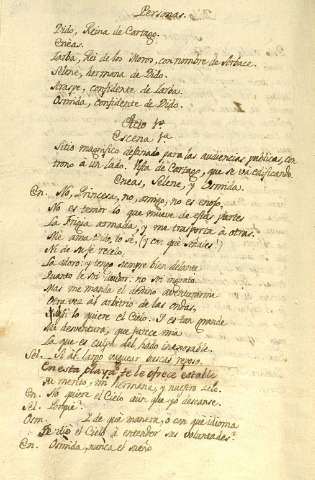 Personas.
Dido, Reina de Cartago.
Eneas.
Iarba, Rei de los Moros, con nombre de Arbace.
Selene, hermana de Dido.
Araspe, confidente de Iarba.
Osmida, confidente de Dido.
Acto 1º
Escena 1ª
Sitio magnifico destinado para las audiencias publicas, con
trono a un lado. Vista de Cartago, que se va edificando.
Eneas, Selene, y Osmida.
En. No, Princesa, no, amigo, no es enojo,
No es temor lo que mueve de estas partes
La Frigia armada, y me trasporta á otras.
Me ama Dido, lo sé, (y con que señales!)
Ni de su fe recelo,
La adoro: y tengo siempre bien delante
Quanto le soi deudor: no soi ingrato
Mas me manda el destino aventurarme
Otra vez al arbitrio de las ondas,
lo quiere el Cielo: I es tan grande
Mi desventura, que parece mia
La que es culpa del hado inexorable.
Sel. Si al largo buscas reposo,
En esta playa te le ofrece estable
Su merito, mi hermana, y nuestro zelo.
En. No quiere el Cielo aún que yo descanse.
Sel. Porqué?
Osm. I de que manera, o con que idioma
Te dió el Cielo á entender sus voluntades?
En. Osmida, nunca el sueño